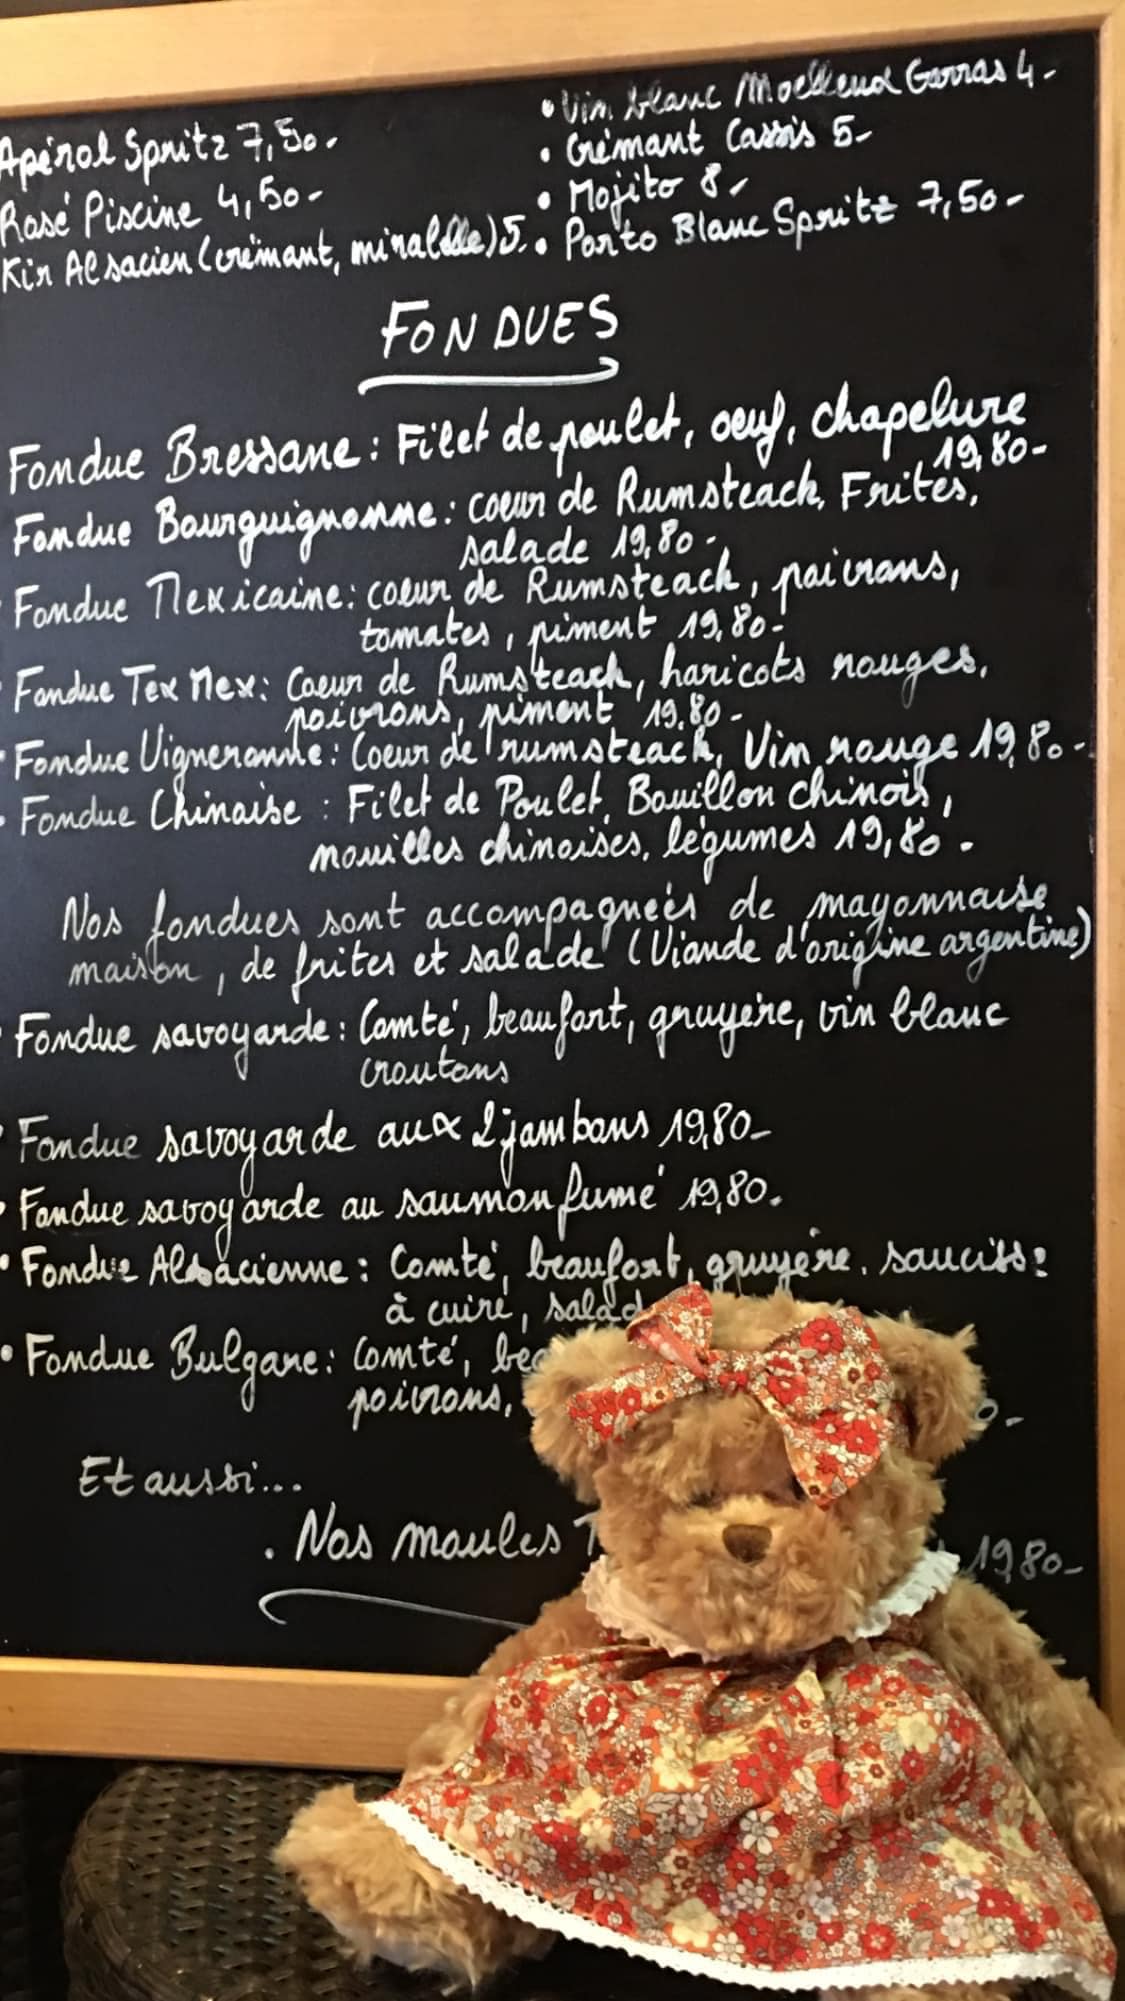 Apérol Spritz 7,50.-
Rosé Piscine 4,50-
Kir Alsacien (crémant, mirabelle) 5.
• Vin blanc Moelleux Garras 4-
• Crémant Cassis 5-
• Mojito 8-
• Porto Blanc Spritz 7,50-
FONDUES
Fondue Bressane : Filet de poulet, oeuf, chapelure
19,80-
Fondue Bourguignonne : coeur de Rumsteack, Frites,
salade 19,80-
Fondue Mexicaine : coeur de Rumsteack, poivrons,
tomates, piment 19,80-
Fondue Tex Mex : Coeur de Rumsteack, haricots rouges,
poivrons, piment 19,80-
• Fondue Vigneronne : Coeur de rumsteack, Vin rouge 19,80-
• Fondue Chinoise : Filet de Poulet, Bouillon chinois,
nouilles chinoises, légumes 19,80.
Nos fondues sont accompagnées de mayonnaise
maison, de frites et salade (Viande d'origine argentine)
Fondue savoyarde : Comté, beaufort, gruyère, vin blanc
croutons
• Fondue savoyarde aux 2 jambons 19,80-
• Fondue savoyarde au saumon fumé 19,80.
• Fondue Alsacienne : Comté, beaufort, gruyère, sauciss
à cuire, salad
• Fondue Bulgare : Comté, bea
poivrons,
0-
Et aussi...
. Nos moules
1980-